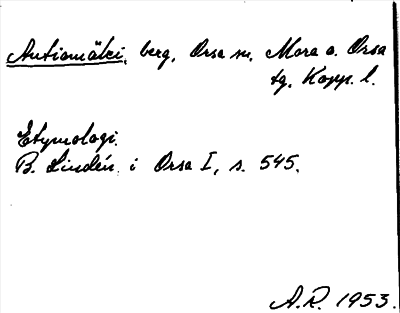 Autiomäki, berg, Orsa sn, Mora o. Orsa
tg, Kopp. l.
Etymologi.
B. Lindén i Orsa I, s. 545.
A.R. 1953.